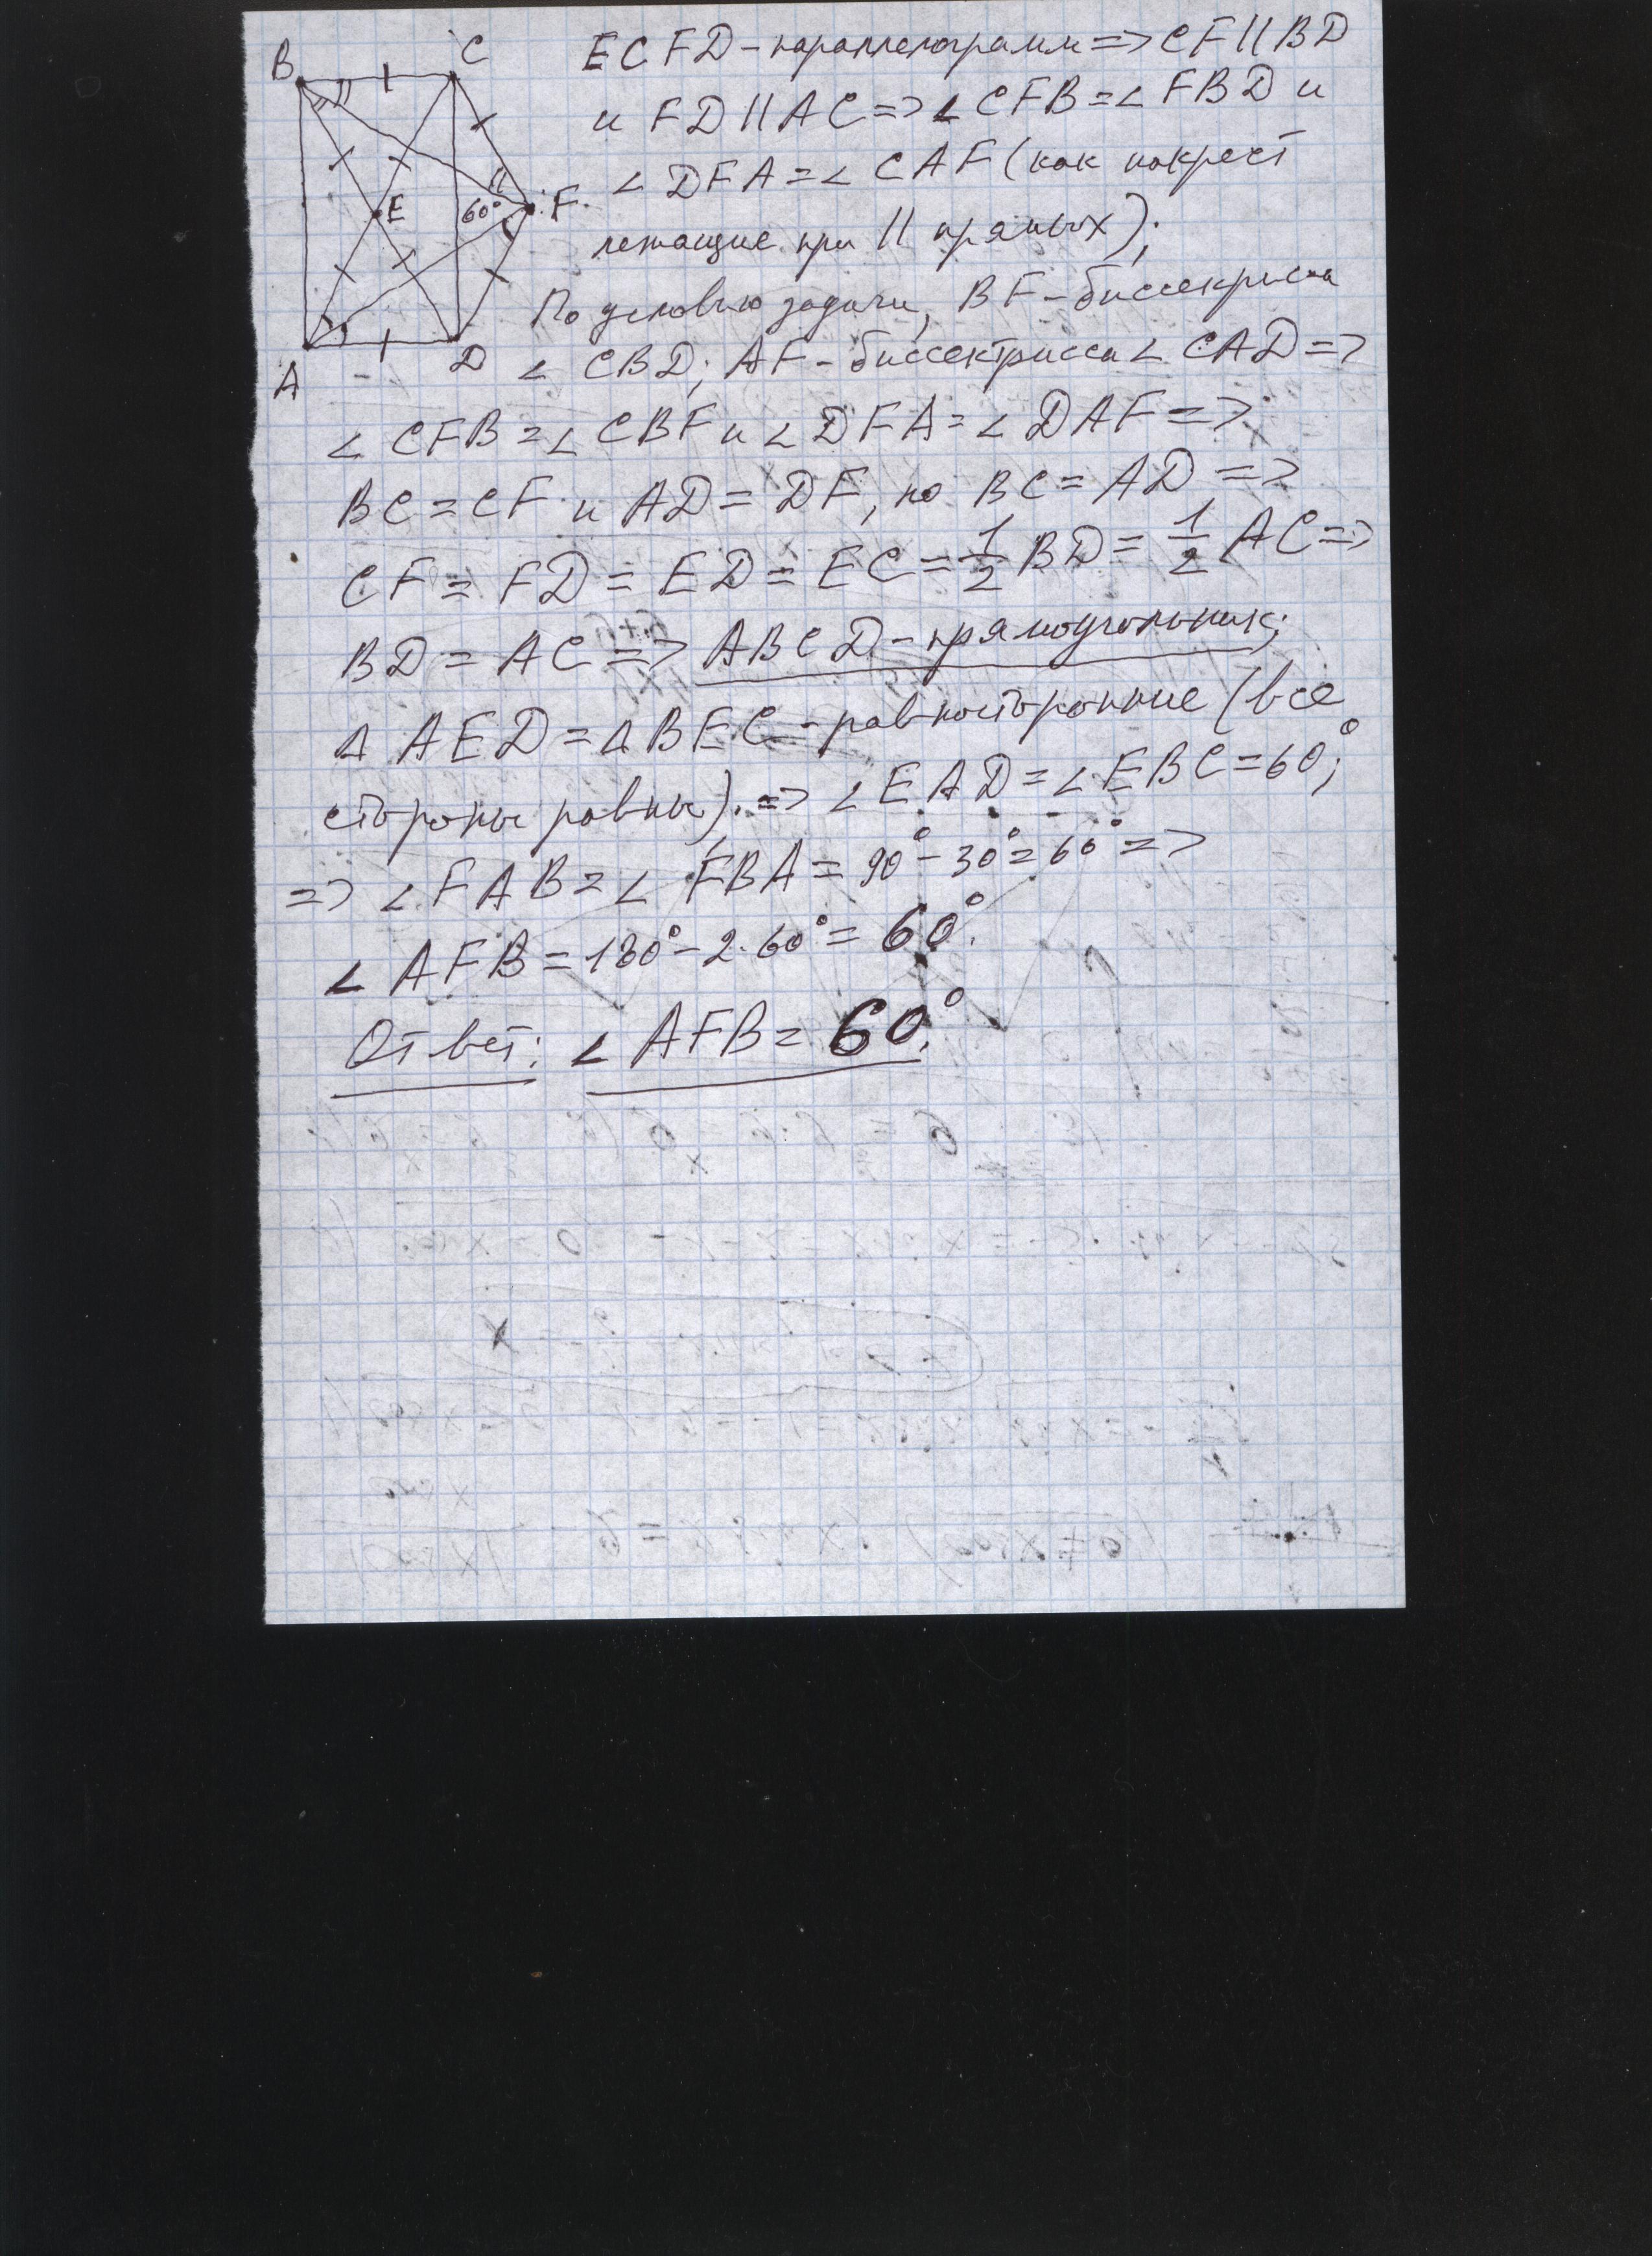 B C
E
60° F
A D
ECFD – параллелограмм => CF || BD
и FD || AC => ∠CFB = ∠FBD и
∠DFA = ∠CAF (как накрест
лежащие при || прямых);
По условию задачи, BF – биссектриса
∠CBD; AF – биссектрисса ∠CAD =>
∠CFB = ∠CBF и ∠DFA = ∠DAF =>
BC = CF и AD = DF, но BC = AD =>
CF = FD = ED = EC = 1/2 BD = 1/2 AC =>
BD = AC => ABCD – прямоугольник;
△AED = △BEC – равносторонние (все
стороны равны). => ∠EAD = ∠EBC = 60°;
=> ∠FAB = ∠FBA = 90° – 30° = 60° =>
∠AFB = 180° – 2·60° = 60°.
Ответ: ∠AFB = 60°.